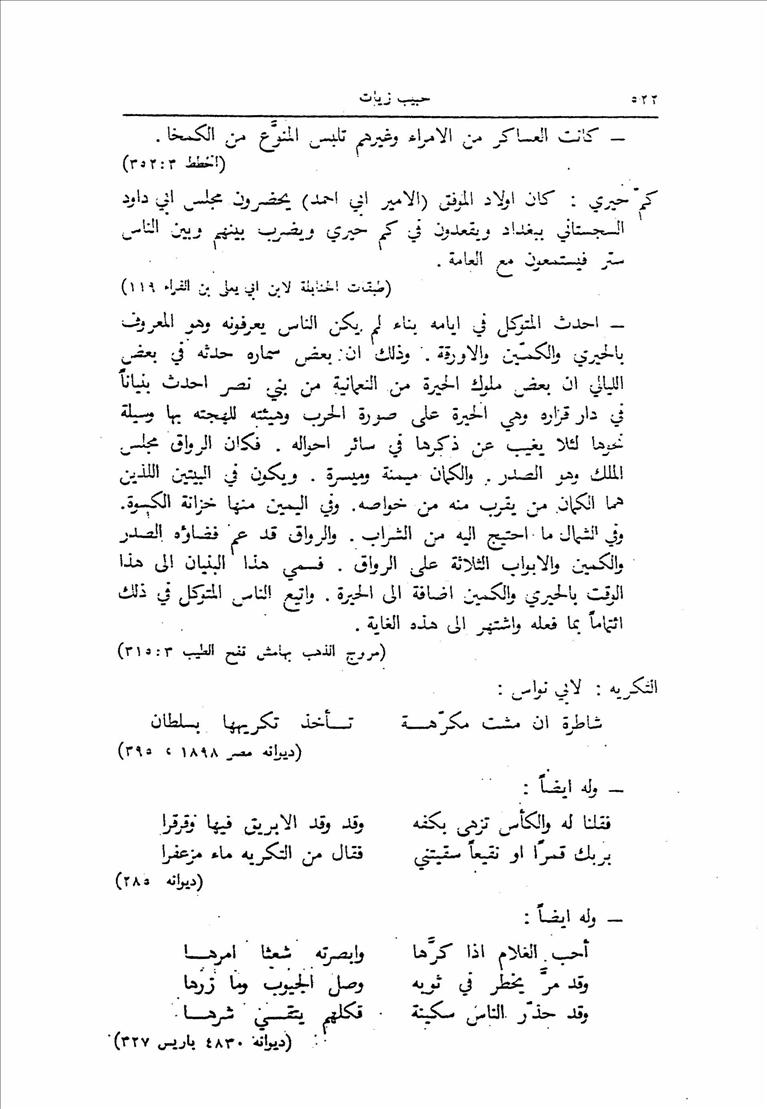 ٥٢٢ حبيب زيات
— كانت العساكر من الامراء وغيرهم تلبس المنوَّع من الكمخا .
(الخطط ٣ : ٣٥٢)
كمّ حيري : كان اولاد الموفق (الامير ابي احمد) يحضرون مجلس ابي داود
السجستاني ببغداد ويقعدون في كم حيري ويضرب بينهم وبين الناس
ستر فيستمعون مع العامة .
(طبقات الحنابلة لابن ابي يعلى بن الفراء ١١٩)
— احدث المتوكل في ايامه بناء لم يكن الناس يعرفونه وهو المعروف
بالحيري والكمّين والاورقة . وذلك ان بعض سماره حدثه في بعض
الليالي ان بعض ملوك الحيرة من النعمانية من بني نصر احدث بنياناً
في دار قراره وهي الحيرة على صورة الحرب وهيئته للهجته بها وسيلة
نحوها لئلا يغيب عن ذكرها في سائر احواله . فكان الرواق مجلس
الملك وهو الصدر . والكمان ميمنة وميسرة . ويكون في البيتين اللذين
هما الكمان من يقرب منه من خواصه. وفي اليمين منها خزانة الكسوة.
وفي الشمال ما احتيج اليه من الشراب . والرواق قد عم فضاؤه الصدر
والكمين والابواب الثلاثة على الرواق . فسمي هذا البنيان الى هذا
الوقت بالحيري والكمين اضافة الى الحيرة . واتبع الناس المتوكل في ذلك
ائتماماً بما فعله واشتهر الى هذه الغاية .
(مروج الذهب بهامش نفح الطيب ٣ : ٣١٥)
التكريه : لابي نواس :
شاطرة ان مشت مكرّهــة تــأخذ تكريهها بسلطان
(ديوانه مصر ١٨٩٨ ، ٣٩٥)
— وله ايضاً :
فقلنا له والكأس تزهى بكفه وقد وقد الابريق فيها وقرقرا
بربك قمرًا او نقيعاً سقيتني فقال من التكريه ماء مزعفرا
(ديوانه ٢٨٥)
— وله ايضاً :
أحب الغلام اذا كرَّها وابصرته شعثا امرهــا
وقد مرَّ يخطر في ثوبه وصل الجيوب وما زرّها
وقد حذّر الناس سكينة فكلهم يتقــي شرهــا
(ديوانه ٤٨٣٠ باريس ٣٢٧)